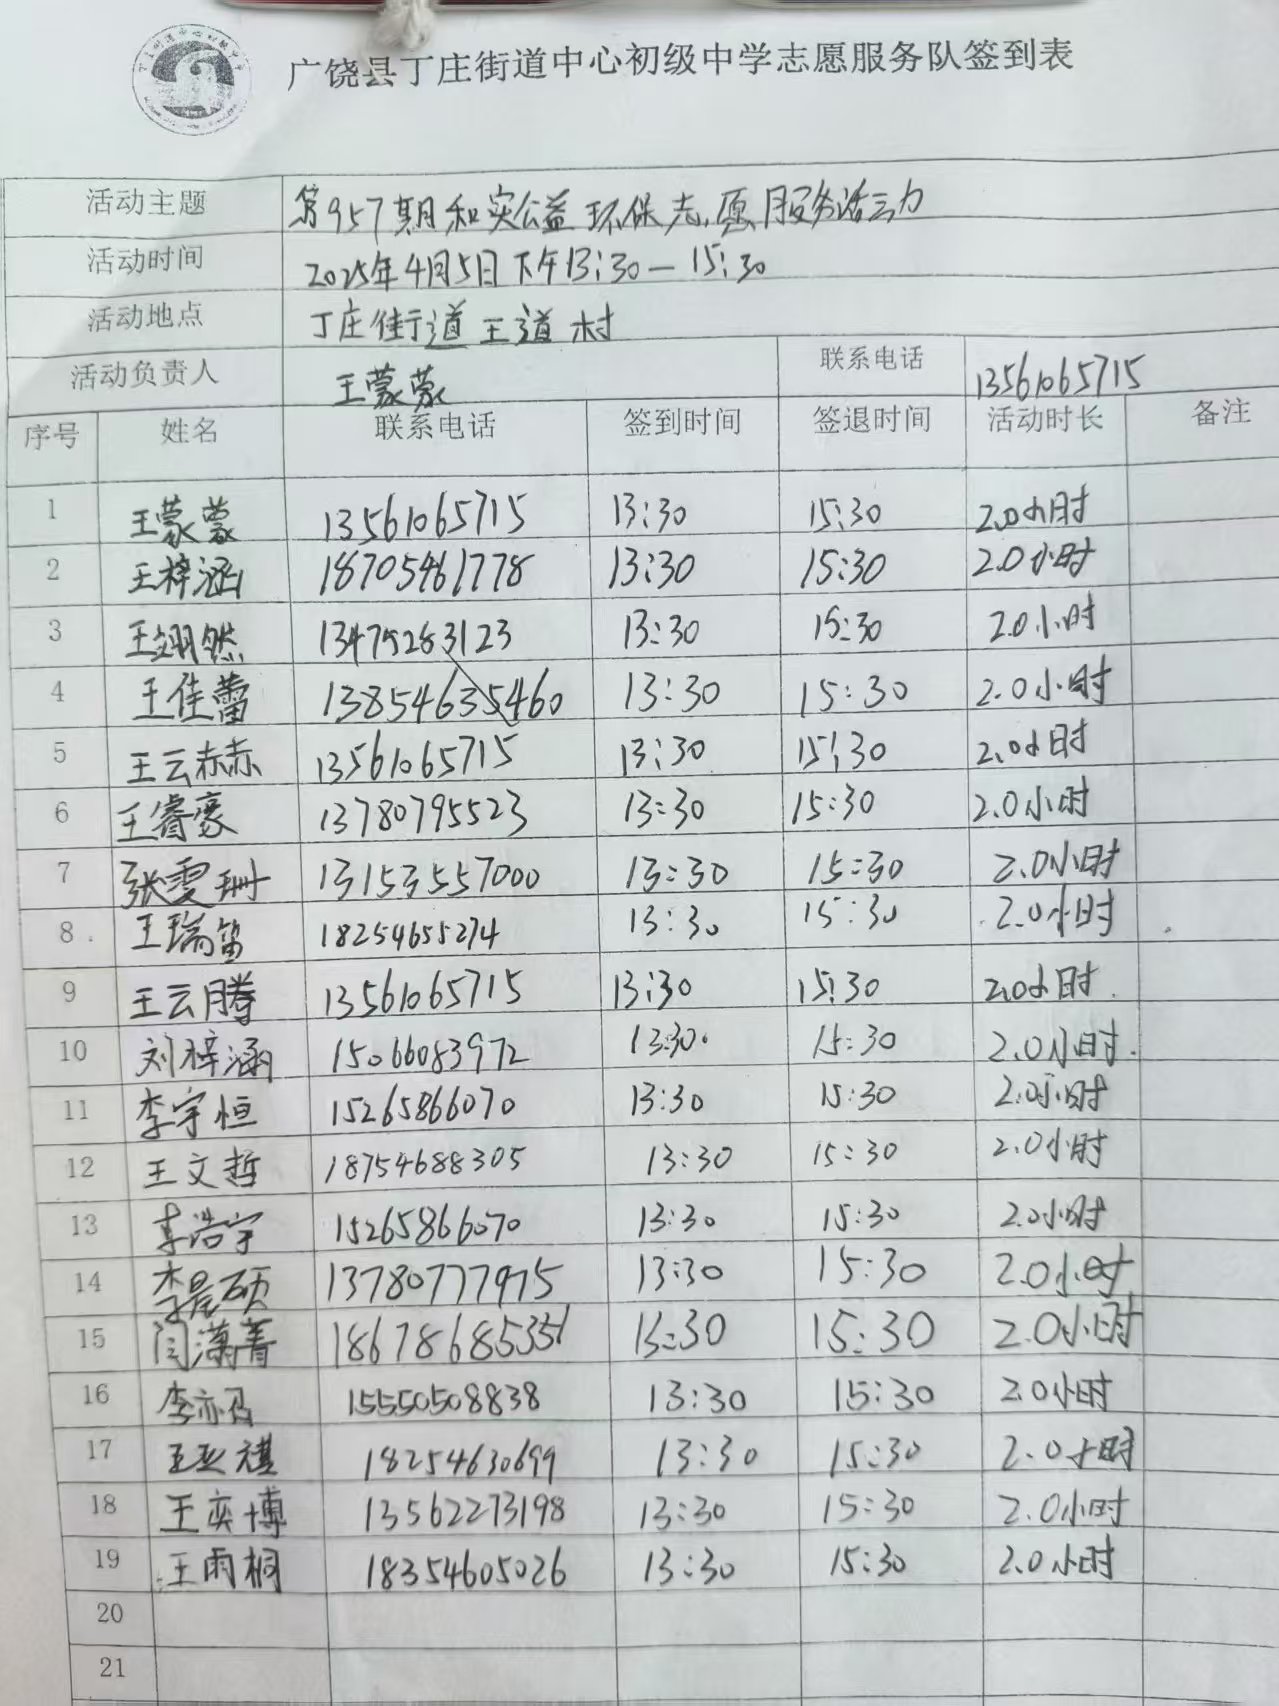 广饶县丁庄街道中心初级中学志愿服务队签到表
活动主题 第957期和实公益环保志愿服务活动
活动时间 2025年4月5日下午13:30—15:30
活动地点 丁庄街道王道村
活动负责人 王蒙蒙 联系电话 13561065715
序号 姓名 联系电话 签到时间 签退时间 活动时长 备注
1 王蒙蒙 13561065715 13:30 15:30 2.0小时
2 王梓涵 18705461778 13:30 15:30 2.0小时
3 王翊然 13475283123 13:30 15:30 2.0小时
4 王佳蕾 13854635460 13:30 15:30 2.0小时
5 王云赫 13561065715 13:30 15:30 2.0小时
6 王睿豪 13780795523 13:30 15:30 2.0小时
7 张雯珊 13153557000 13:30 15:30 2.0小时
8 王瑞笛 18254655274 13:30 15:30 2.0小时
9 王云腾 13561065715 13:30 15:30 2.0小时
10 刘梓涵 15066083972 13:30 15:30 2.0小时
11 李宇恒 15265866070 13:30 15:30 2.0小时
12 王文哲 18754688305 13:30 15:30 2.0小时
13 李浩宇 15265866070 13:30 15:30 2.0小时
14 李晨硕 13780777975 13:30 15:30 2.0小时
15 闫潇菁 18678685351 13:30 15:30 2.0小时
16 李亦 15550508838 13:30 15:30 2.0小时
17 王亚祺 18254630699 13:30 15:30 2.0小时
18 王奕博 13562273198 13:30 15:30 2.0小时
19 王雨桐 18354605026 13:30 15:30 2.0小时
20
21